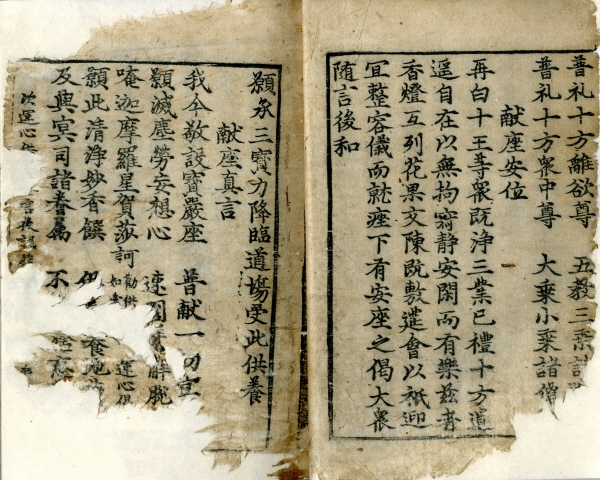 普礼十方離欲尊 五教三乘諸
普礼十方衆中尊 大乘小乘諸僧
献座安位
再白十王等衆既浄三業已禮十方逍
遥自在以無拘寂静安閑而有樂玆者
香燈互列花果交陳既敷筵會以祗迎
冝整容儀而就座下有安座之偈大衆
随言後和
願承三寳力降臨道塲受此供養
献座真言
我今敬設寳嚴座 普献一切冝
願滅塵勞妄想心 速圓 解脱
唵迦摩羅星賀莎訶
願此清浄妙香饌
及與冥司諸眷属 不
次運心供